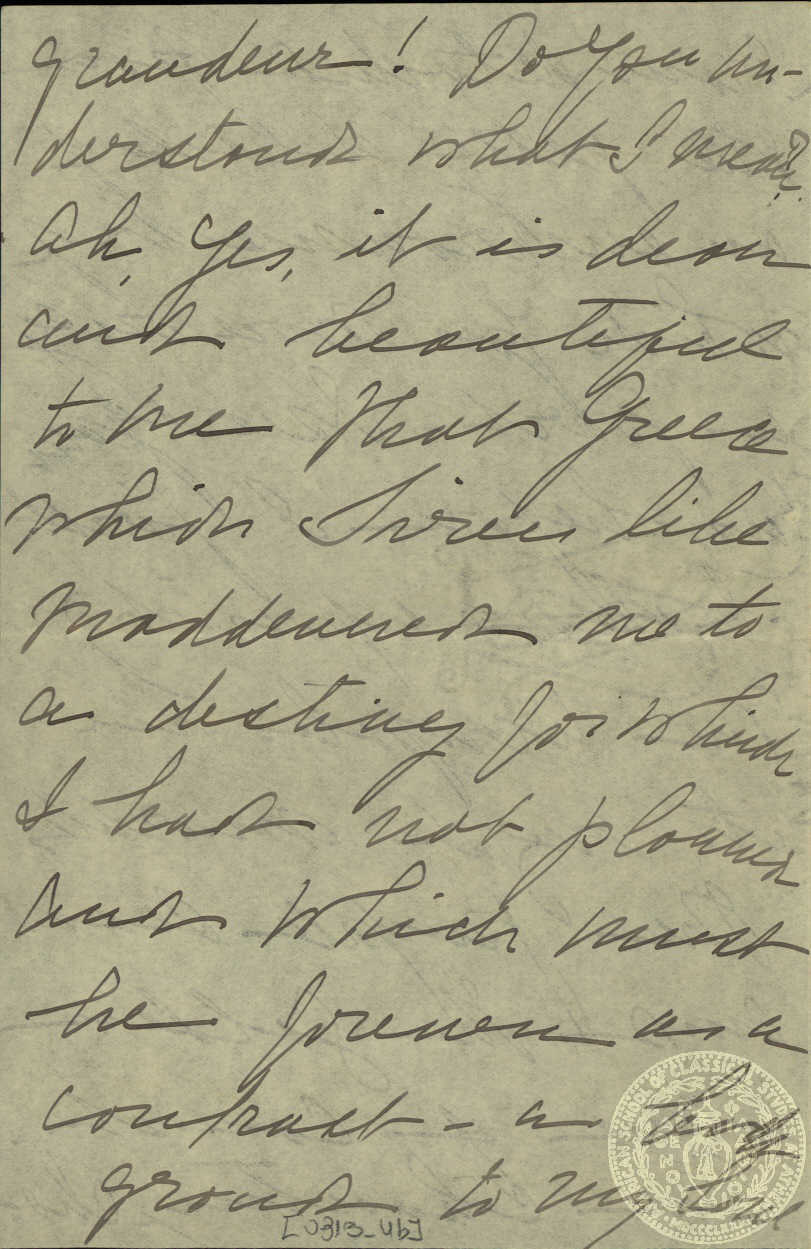 grandeur! Do you un-
derstand what I mean?
Ah, yes, it is dear
and beautiful
to me that Greece
which Siren like
maddened me to
a destiny for which
I had not planned
and which must
be forever as a
contrast - a
ground to my
[0313_4b]
AMERICAN SCHOOL OF CLASSICAL STUDIES AT ATHENS
MDCCCLXXXI